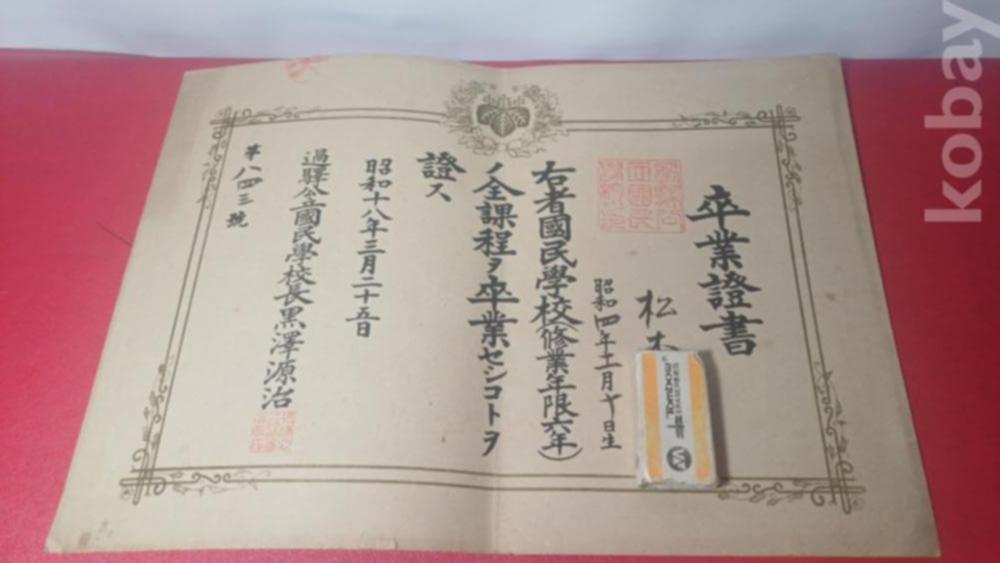 卒業證書
松本
昭和四年十一月十日生
右者國民學校(修業年限六年)
ノ全課程ヲ卒業セシコトヲ
證ス
昭和十八年三月二十五日
過驛公立國民學校長黒澤源治
第八四三號
Tombow
kobay